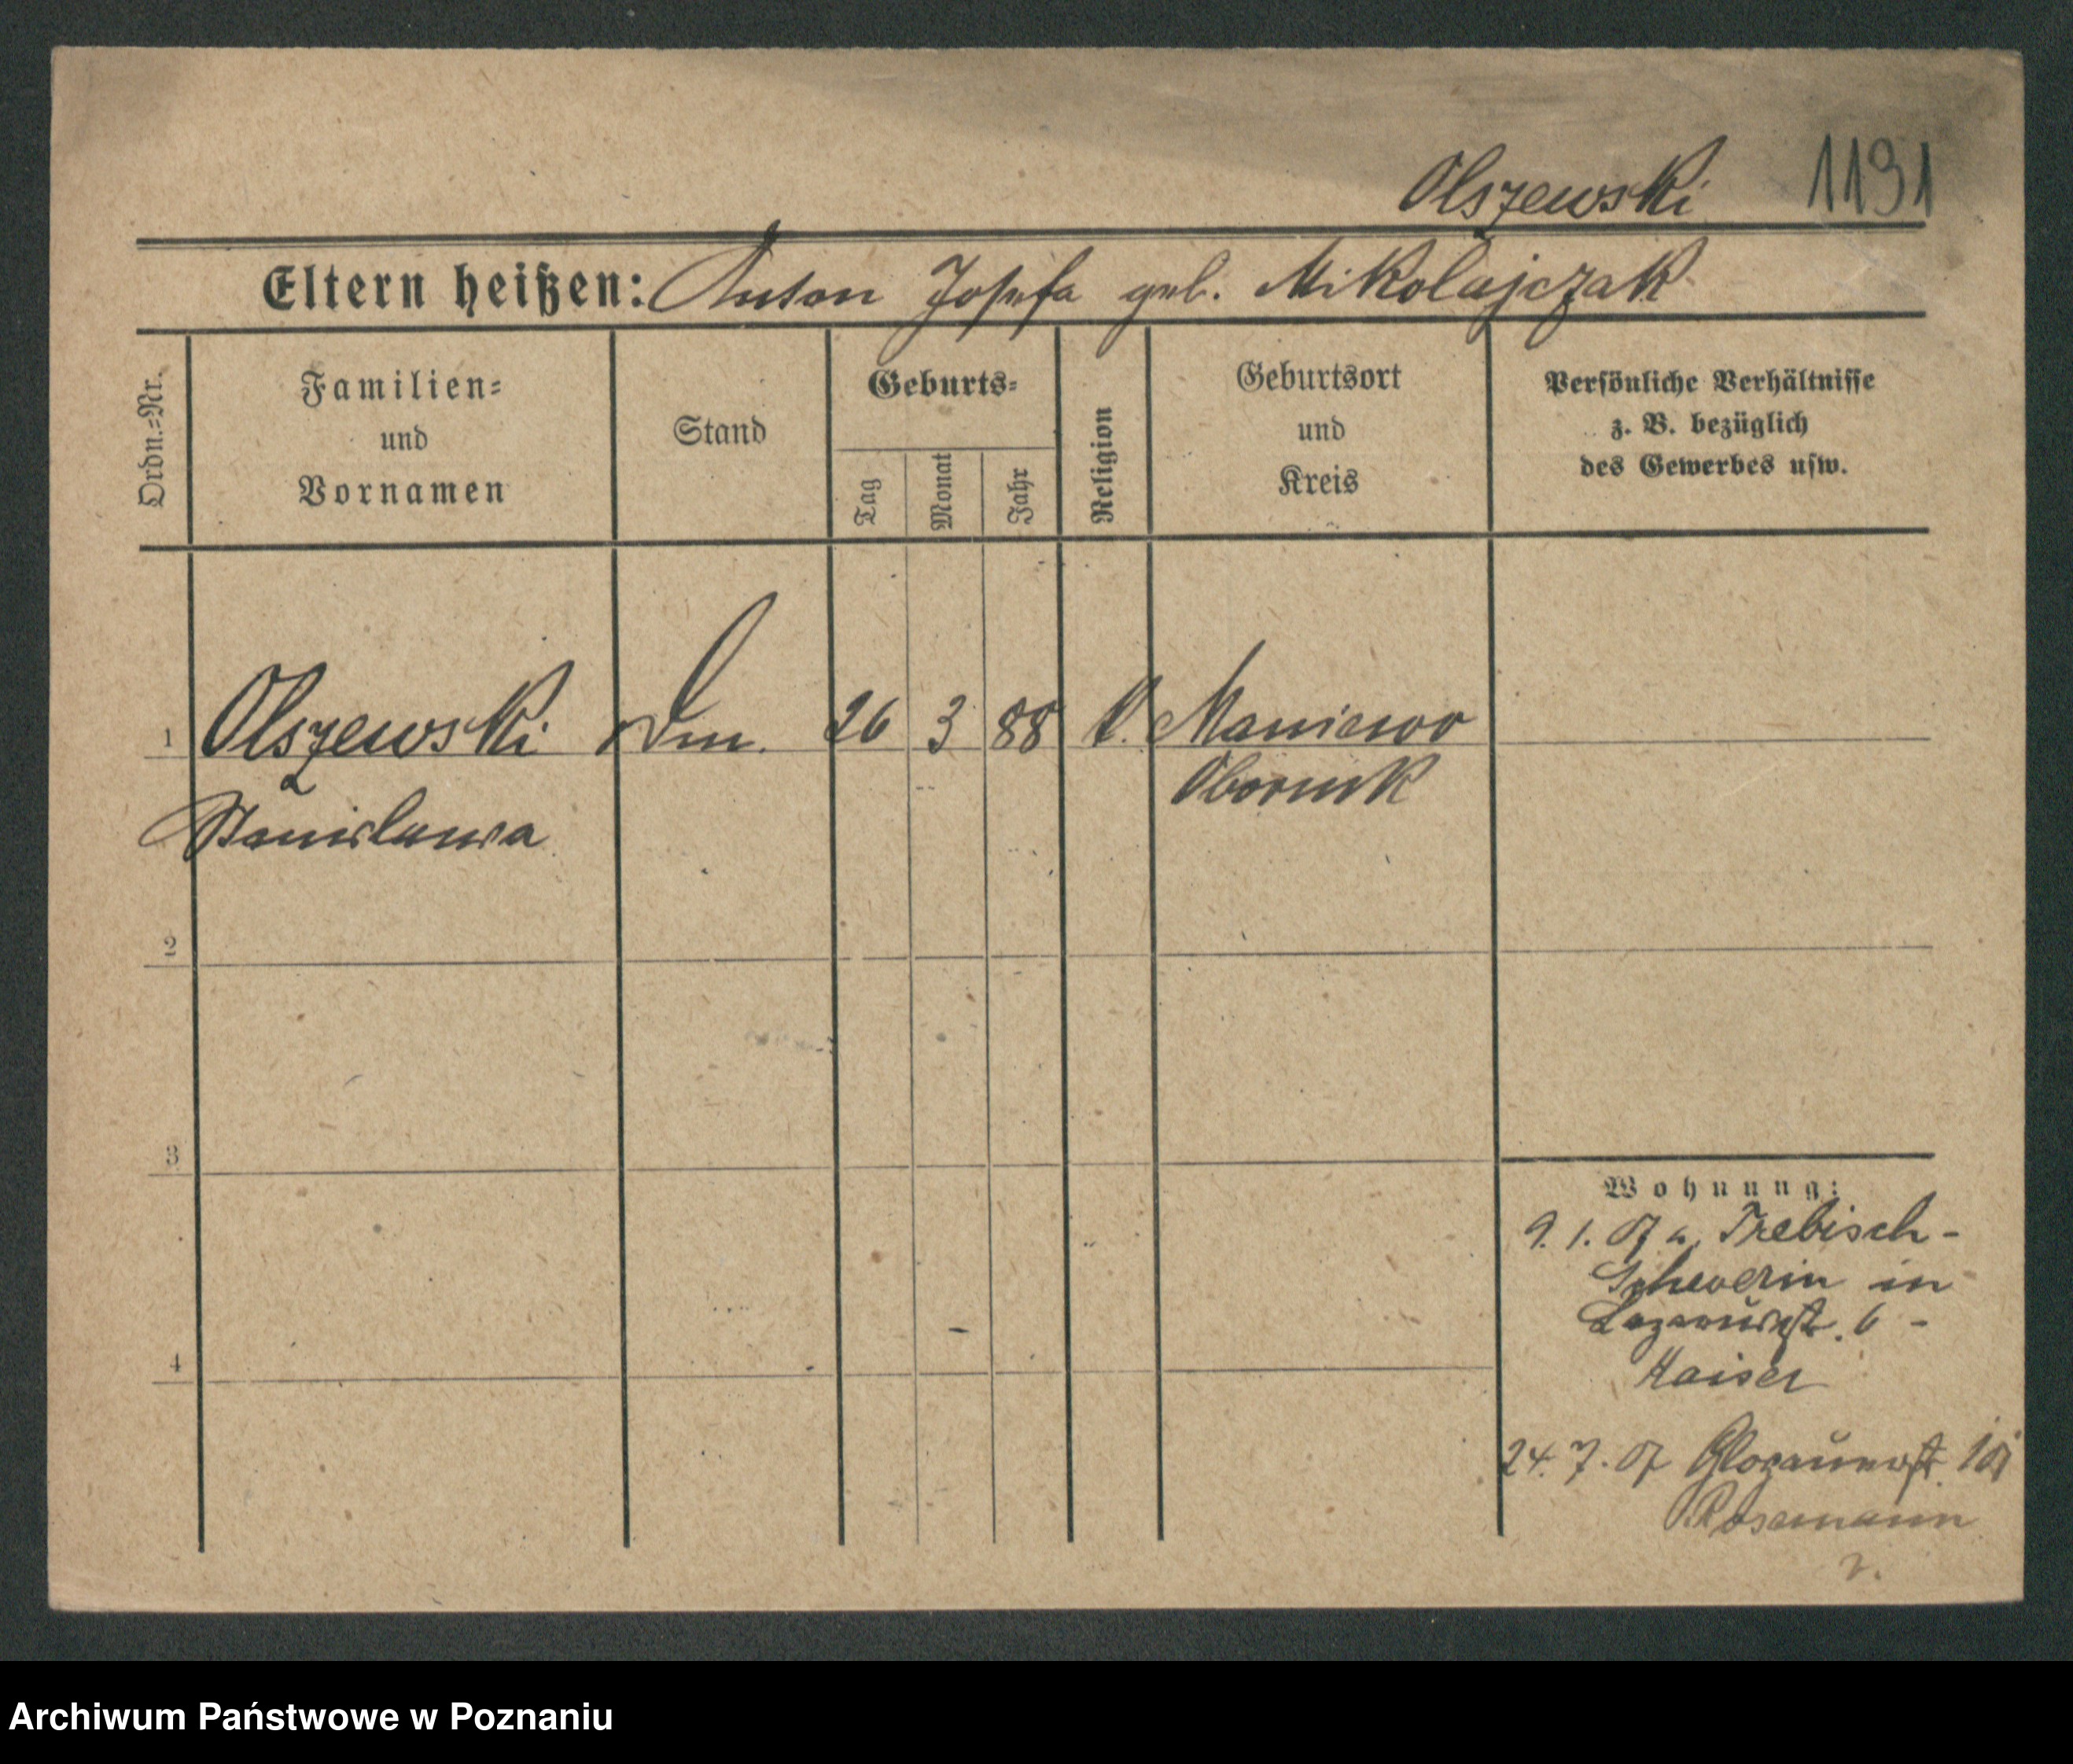 Olszewski 1191
Eltern heißen: Anton Josefa geb. Mikolajczak
Ordn.-Nr.
Familien-
und
Vornamen
Stand
Geburts-
Tag
Monat
Jahr
Religion
Geburtsort
und
Kreis
Persönliche Verhältnisse
z. B. bezüglich
des Gewerbes usw.
1 Olszewski 26 3 88 k. Maniewo
Obornik
Stanislawa
2
3
4
Wohnung:
9. 1. 07 Trebisch-
Schwerin in
6 -
Kaiser
24. 7. 07 Glogauerst
Rosemann
Archiwum Państwowe w Poznaniu